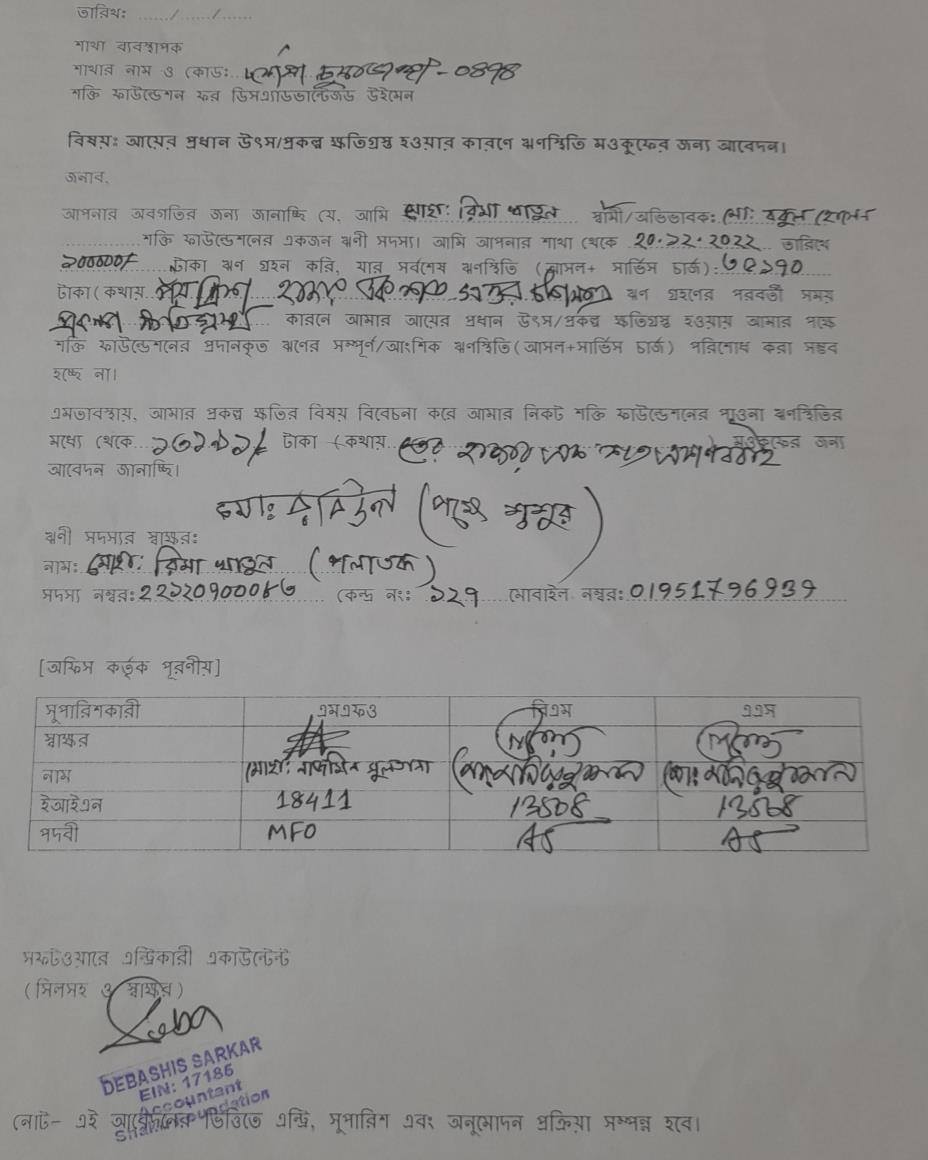 তারিখ: ....../....../......
শাখা ব্যবস্থাপক
শাখার নাম ও কোড: - 0898
শক্তি ফাউন্ডেশন ফর ডিসএ্যাডভান্টেজড উইমেন
বিষয়: আয়ের প্রধান উৎস/প্রকল্প ক্ষতিগ্রস্ত হওয়ার কারণে ঋণস্থিতি মওকুফের জন্য আবেদন।
জনাব,
আপনার অবগতির জন্য জানাচ্ছি যে, আমি মোছা: রিমা খাতুন স্বামী/অভিভাবক: মো: বকুল হোসেন
শক্তি ফাউন্ডেশনের একজন ঋণী সদস্য। আমি আপনার শাখা থেকে ২০.১২.২০২২ তারিখে
১০০০০০/- টাকা ঋণ গ্রহন করি, যার সর্বশেষ ঋণস্থিতি (আসল+ সার্ভিস চার্জ): ৩৫১৭০
টাকা(কথায় পঁয়ত্রিশ হাজার এক শত সত্তর ঋণ গ্রহনের পরবর্তী সময়
প্রকল্প ক্ষতিগ্রস্থ কারনে আমার আয়ের প্রধান উৎস/প্রকল্প ক্ষতিগ্রস্ত হওয়ায় আমার পক্ষে
শক্তি ফাউন্ডেশনের প্রদানকৃত ঋণের সম্পূর্ণ/আংশিক ঋণস্থিতি(আসল+সার্ভিস চার্জ) পরিশোধ করা সম্ভব
হচ্ছে না।
এমতাবস্থায়, আমার প্রকল্প ক্ষতির বিষয় বিবেচনা করে আমার নিকট শক্তি ফাউন্ডেশনের পাওনা ঋণস্থিতির
মধ্যে থেকে টাকা (কথায় তের হাজার এক শত মওকুফের জন্য
আবেদন জানাচ্ছি।
মো: রবিউল (পক্ষে শ্বশুর)
ঋণী সদস্যর স্বাক্ষর:
নাম: মোছা: রিমা খাতুন (পলাতক)
সদস্য নম্বর: ২২১২০৭০০০৮৩ কেন্দ্র নং: ১২৭ মোবাইল নম্বর: 01951796939
[অফিস কর্তৃক পূরনীয়]
সুপারিশকারী এমএফও বিএম এএস
স্বাক্ষর
নাম মোছা: নাজমিন সুলতানা মো: মনিরুজ্জামান মো: মনিরুজ্জামান
ইআইএন 18411 13508 13508
পদবী MFO AS AS
সফটওয়ারে এন্ট্রিকারী একাউন্টেন্ট
(সিলসহ ও স্বাক্ষর)
DEBASHIS SARKAR
EIN: 17185
Accountant
Shakti Foundation
নোট- এই আবেদনের ভিত্তিতে এন্ট্রি, সুপারিশ এবং অনুমোদন প্রক্রিয়া সম্পন্ন হবে।